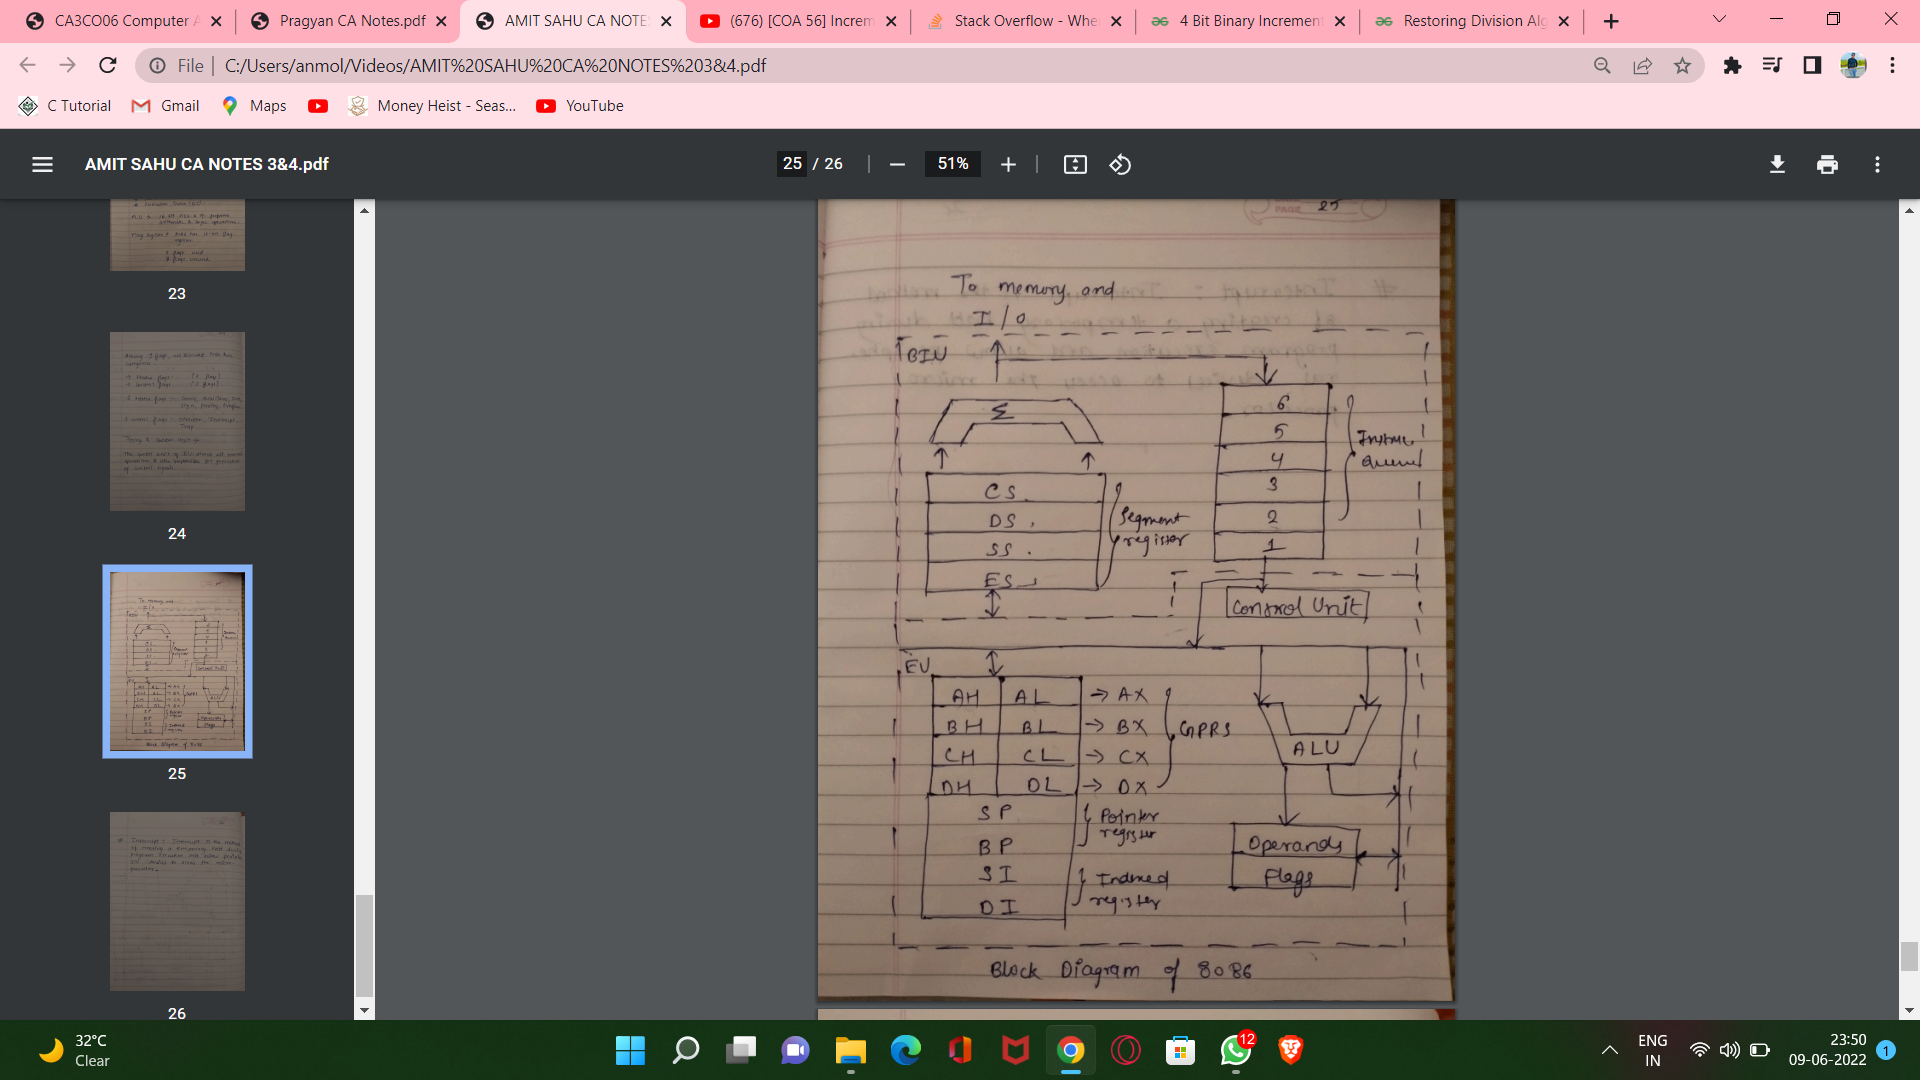 CA3CO06 Computer A
Pragyan CA Notes.pdf
AMIT SAHU CA NOTE
(676) [COA 56] Increm
Stack Overflow - Whe
4 Bit Binary Increment
Restoring Division Alg
File
C:/Users/anmol/Videos/AMIT%20SAHU%20CA%20NOTES%203&4.pdf
C Tutorial
Gmail
Maps
Money Heist - Seas...
YouTube
AMIT SAHU CA NOTES 3&4.pdf
25 / 26
51%
23
24
25
26
PAGE 25
To memory and
I/O
BIU
Σ
6
5
4
3
2
1
CS
DS
SS
ES
Segment
register
Control Unit
EU
AH AL → AX
BH BL → BX
CH CL → CX
DH DL → DX
GPRS
SP
BP
SI
DI
Pointer
register
Indexed
register
ALU
Operands
Flags
Block Diagram of 8086
32°C
Clear
12
ENG
IN
23:50
09-06-2022
1